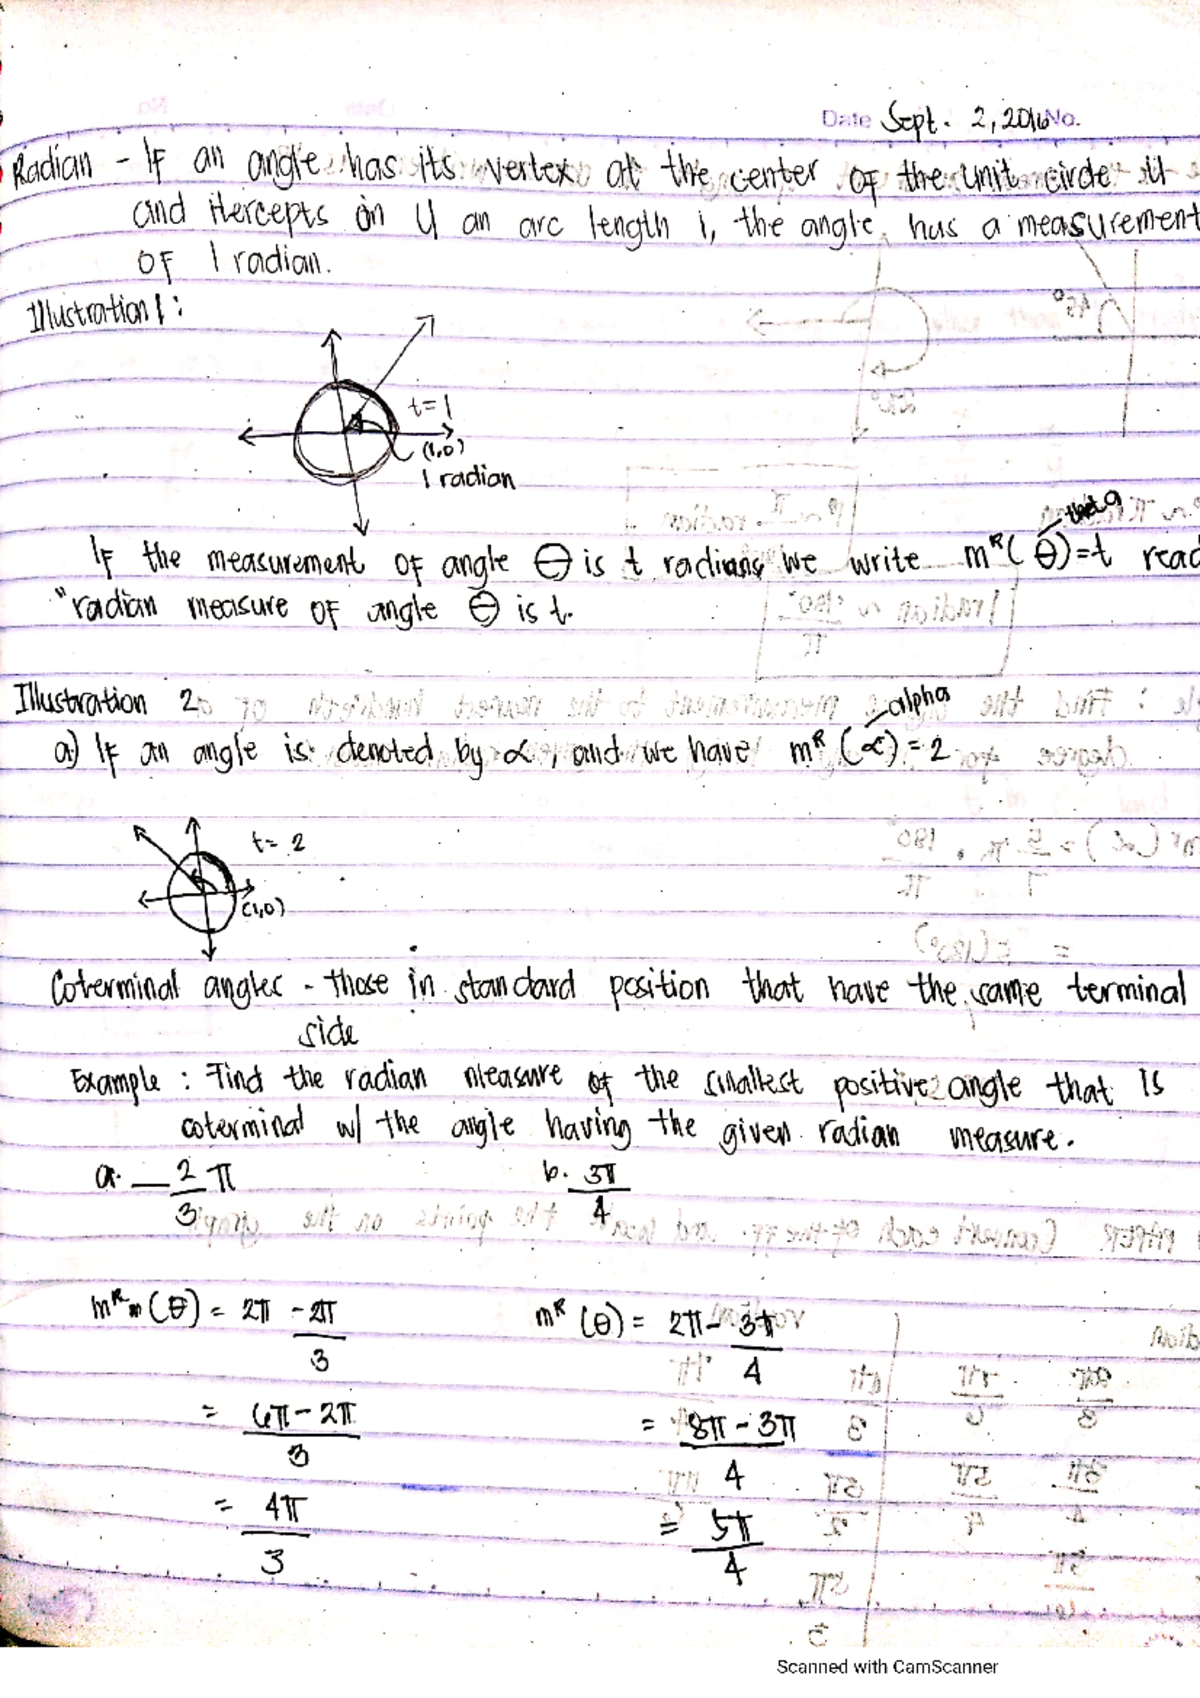 Date Sept. 2, 2016 No.
Radian - If an angle has its vertex at the center of the unit circle U
and itercepts on U an arc length 1, the angle has a measurement
of 1 radian.
Illustration 1:
t = 1
(1,0)
1 radian
theta
If the measurement of angle θ is t radians we write m^R(θ)=t read
"radian measure of angle θ is t.
Illustration 2
alpha
a) If an angle is denoted by α, and we have m^R(α) = 2
t = 2
(1,0)
Coterminal angles - those in standard position that have the same terminal
side
Example: Find the radian measure of the smallest positive angle that is
coterminal w/ the angle having the given radian measure.
a. -2/3 π b. 3π/4
m^R(θ) = 2π - 2π/3 m^R(θ) = 2π - 3π/4
= 6π - 2π/3 = 8π - 3π/4
= 4π/3 = 5π/4
Scanned with CamScanner